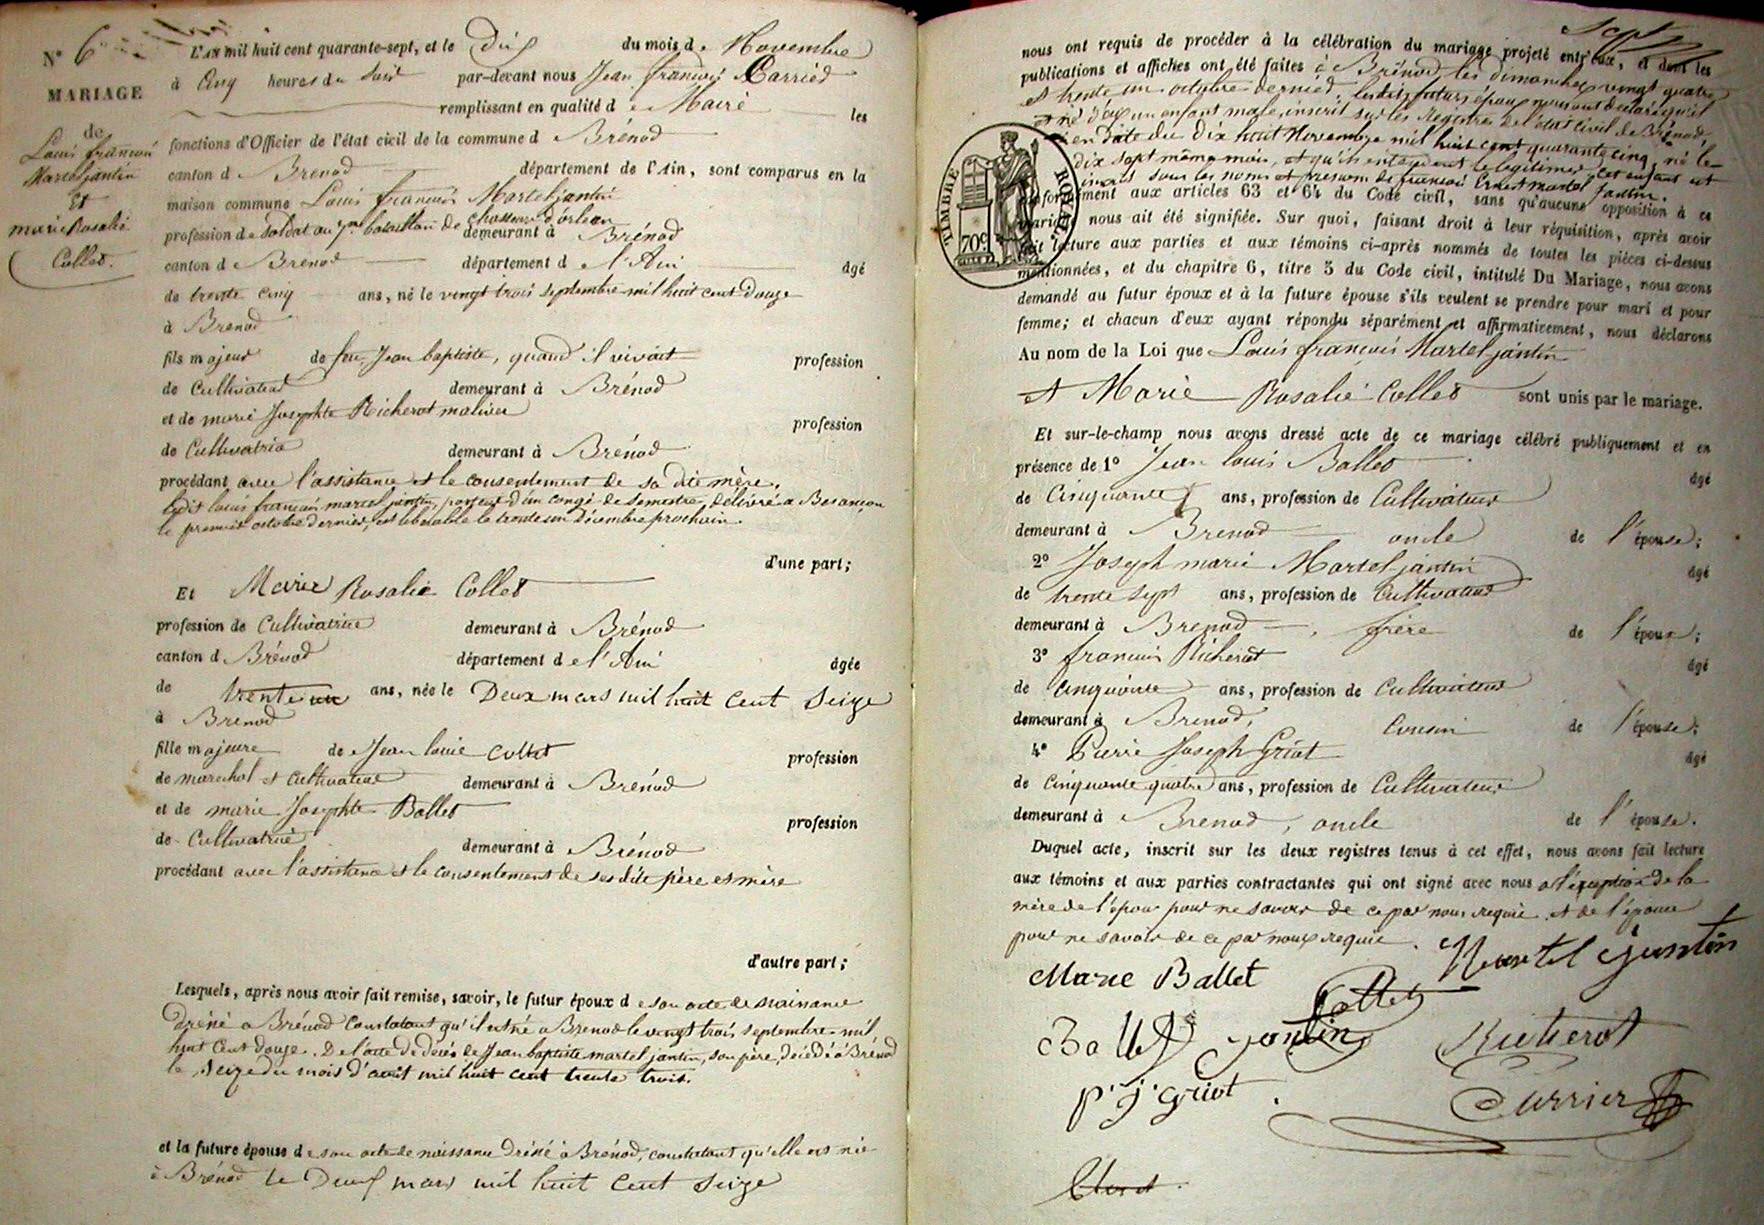 N° 6
MARIAGE
de
Louis françois
Martel jantin
Et
marie Rosalie
Collet.
L'AN mil huit cent quarante-sept, et le Dix du mois de Novembre
à Cinq heures du Soir par-devant nous Jean françois Carrier
remplissant en qualité de Maire les
fonctions d'Officier de l'état civil de la commune d Brénod
canton d Brenod département de l'Ain, sont comparus en la
maison commune Louis françois Martel jantin
profession de soldat au 7me bataillon de chasseurs d'orléans demeurant à Brénod
canton de Brenod département de l'Ain âgé
de trente cinq ans, né le vingt trois septembre mil huit cent douze
à Brenod
fils majeur de feu Jean baptiste, quand il vivait profession
de Cultivateur demeurant à Brénod
et de marie Josephte Richerot profession
de Cultivatrice demeurant à Brénod
procédant avec l'assistance et le consentement de sa dite mère.
ledit louis françois martel jantin, porteur d'un congé de semestre, délivré a Besançon
le premier octobre dernier, est libérable le trente un décembre prochain.
d'une part;
Et Marie Rosalie Collet
profession de Cultivatrice demeurant à Brénod
canton d Brénod département de l'Ain âgée
de trente un ans, née le Deux mars mil huit cent seize
à Brenod
fille majeure de Jean louis collet profession
de marechal et cultivateur demeurant à Brénod
et de marie Josephte Ballet profession
de Cultivatrice demeurant à Brénod
procédant avec l'assistance et le consentement de ses dits père et mère
d'autre part;
Lesquels, après nous avoir fait remise, savoir, le futur époux de son acte de naissance
dressé a Brénod constatant qu'il est né a Brenod le vingt trois septembre mil
huit cent douze. De l'acte de décès de Jean baptiste martel jantin, son père, décédé à Brénod
le seize du mois d'août mil huit cent trente trois.
et la future épouse de son acte de naissance dressé à Brénod, constatant qu'elle est née
à Brénod le Deux mars mil huit cent seize
sept
nous ont requis de procéder à la célébration du mariage projeté entr'eux, et dont les
publications et affiches ont été faites à Brénod, les dimanches vingt quatre
et trente un octobre dernier. lesdits futurs époux nous ont déclaré qu'il
est né d'eux un enfant male, inscrit sur les Registres de l'état civil de Brénod,
en date du dix huit Novembre mil huit cent quarante cinq, né le
dix sept même mois, et qu'ils entendent le légitimer. cet enfant est
inscrit sous les noms et prénoms de françois Ernest Martel jantin.
conformément aux articles 63 et 64 du Code civil, sans qu'aucune opposition à ce
mariage nous ait été signifiée. Sur quoi, faisant droit à leur réquisition, après avoir
fait lecture aux parties et aux témoins ci-après nommés de toutes les pièces ci-dessus
mentionnées, et du chapitre 6, titre 5 du Code civil, intitulé Du Mariage, nous avons
demandé au futur époux et à la future épouse s'ils veulent se prendre pour mari et pour
femme; et chacun d'eux ayant répondu séparément et affirmativement, nous déclarons
Au nom de la Loi que Louis françois Martel jantin
et Marie Rosalie Collet sont unis par le mariage.
TIMBRE ROYAL
70c
Et sur-le-champ nous avons dressé acte de ce mariage célébré publiquement et en
présence de 1° Jean louis Ballet âgé
de Cinquante ans, profession de Cultivateur
demeurant à Brenod oncle de l'épouse;
2° Joseph marie Martel jantin âgé
de trente sept ans, profession de Cultivateur
demeurant à Brenod, frère de l'époux;
3° françois Richerot âgé
de cinquante ans, profession de Cultivateur
demeurant à Brenod, cousin de l'épouse;
4° Pierre Joseph Griot âgé
de cinquante quatre ans, profession de Cultivateur
demeurant à Brenod, oncle de l'épouse.
Duquel acte, inscrit sur les deux registres tenus à cet effet, nous avons fait lecture
aux témoins et aux parties contractantes qui ont signé avec nous a l'exception de la
mère de l'époux pour ne savoir de ce par nous requise et de l'épouse
pour ne savoir de ce par nous requise.
Marie Ballet
Collet
Martel Jantin
Ballet
jantin
Richerot
p. j. Griot.
Carrier